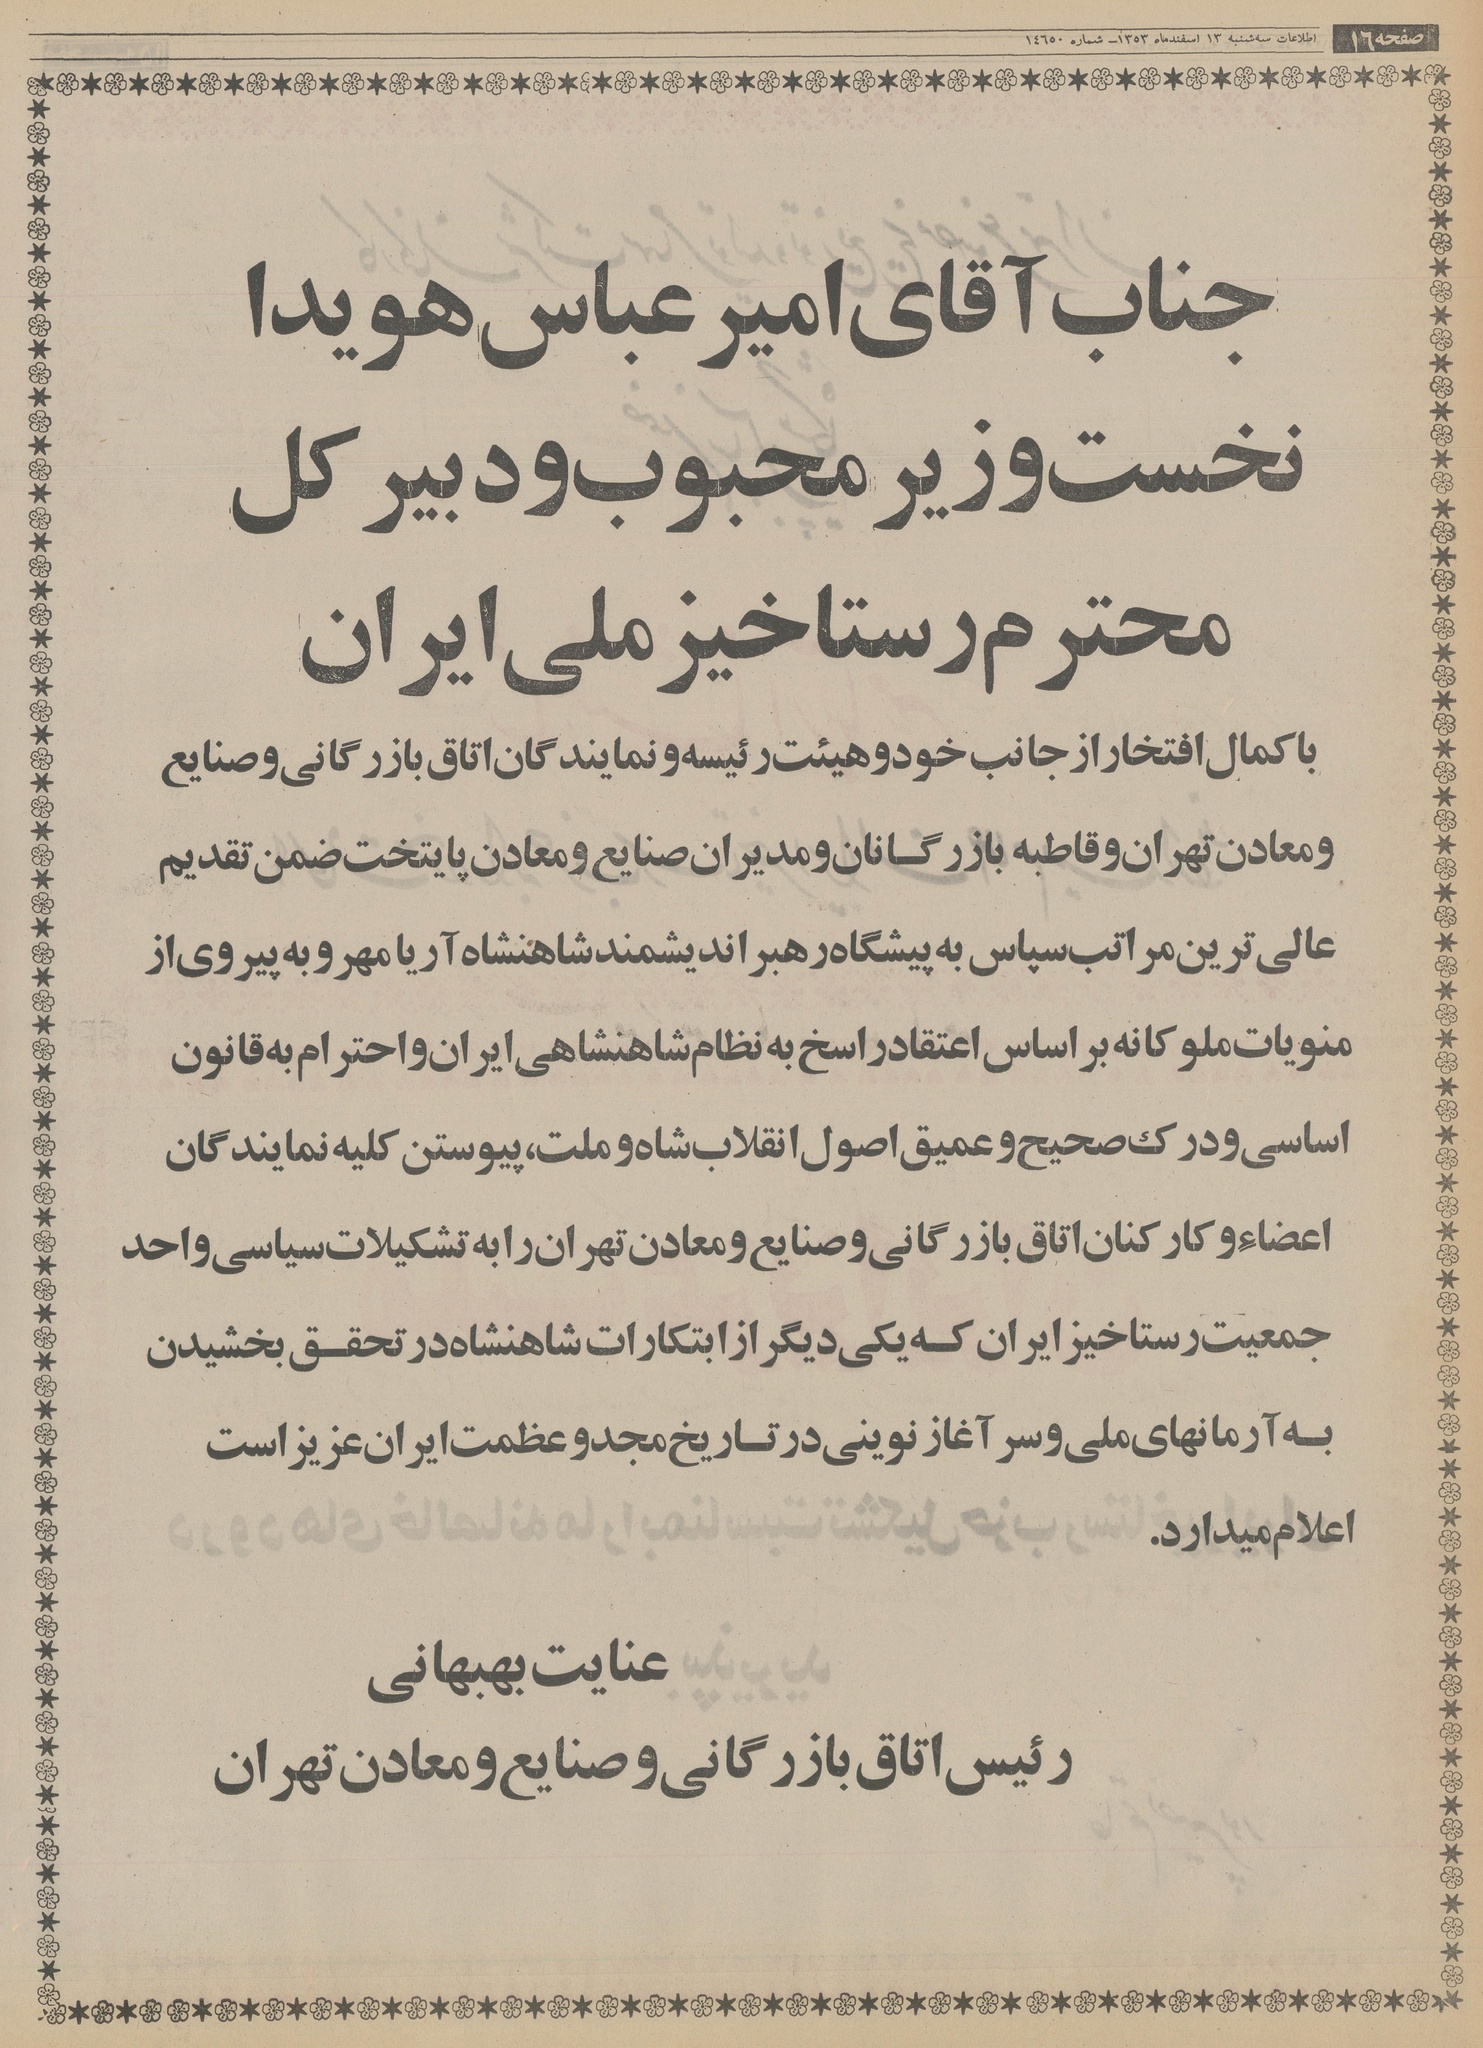 صفحه ۱۶
اطلاعات سه‌شنبه ۱۳ اسفندماه ۱۳۵۳ـ شماره ۱۴۶۵۰
جناب آقای امیر عباس هویدا
نخست وزیر محبوب و دبیر کل
محترم رستاخیز ملی ایران
با کمال افتخار از جانب خود و هیئت رئیسه و نمایندگان اتاق بازرگانی و صنایع
و معادن تهران و قاطبه بازرگـانان و مدیران صنایع و معادن پایتخت ضمن تقدیم
عالی ترین مراتب سپاس به پیشگاه رهبر اندیشمند شاهنشاه آریا مهر و به پیروی از
منویات ملوکانه بر اساس اعتقاد راسخ به نظام شاهنشاهی ایران و احترام به قانون
اساسی و درک صحیح و عمیق اصول انقلاب شاه و ملت، پیوستن کلیه نمایندگان
اعضاءِ و کارکنان اتاق بازرگانی و صنایع و معادن تهران را به تشکیلات سیاسی واحد
جمعیت رستاخیز ایران کـه یکی دیگر از ابتکارات شاهنشاه در تحقـق بخشیدن
بـه آرمانهای ملی و سر آغاز نوینی در تـاریخ مجد و عظمت ایران عزیز است
اعلام میدارد.
عنایت بهبهانی
رئیس اتاق بازرگانی و صنایع و معادن تهران